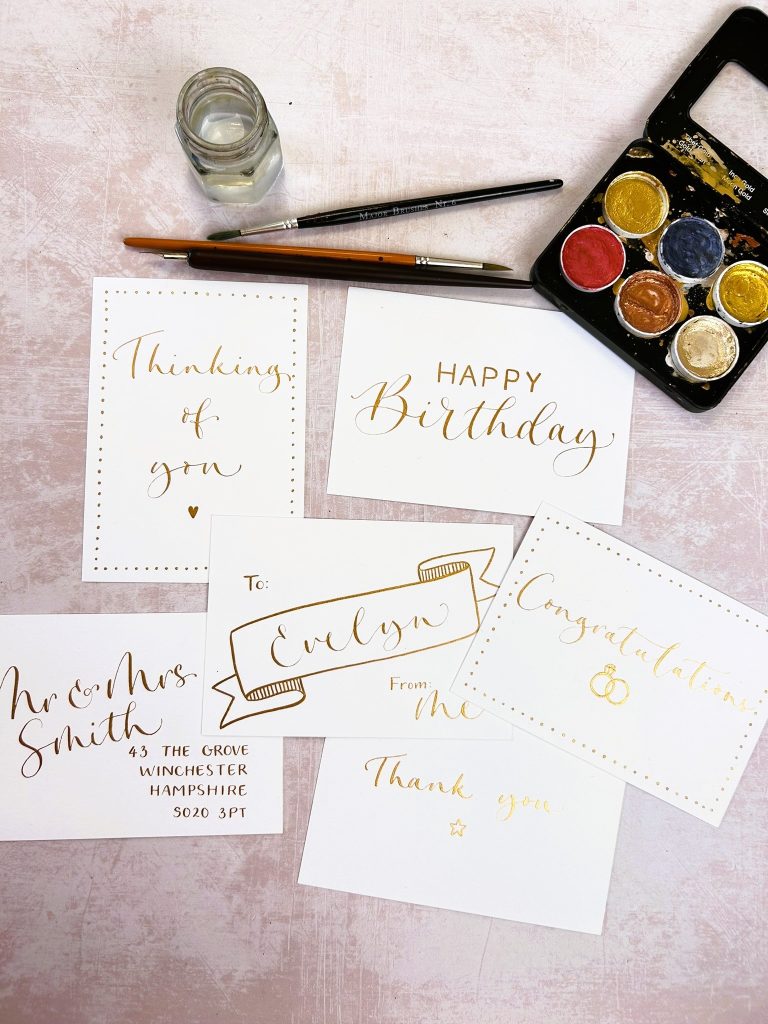 MAJOR BRUSHES Nr. 6
Thinking
of
you
HAPPY
Birthday
To:
Evelyn
From:
me
Congratulations
Mr & Mrs
Smith
43 THE GROVE
WINCHESTER
HAMPSHIRE
SO20 3PT
Thank you